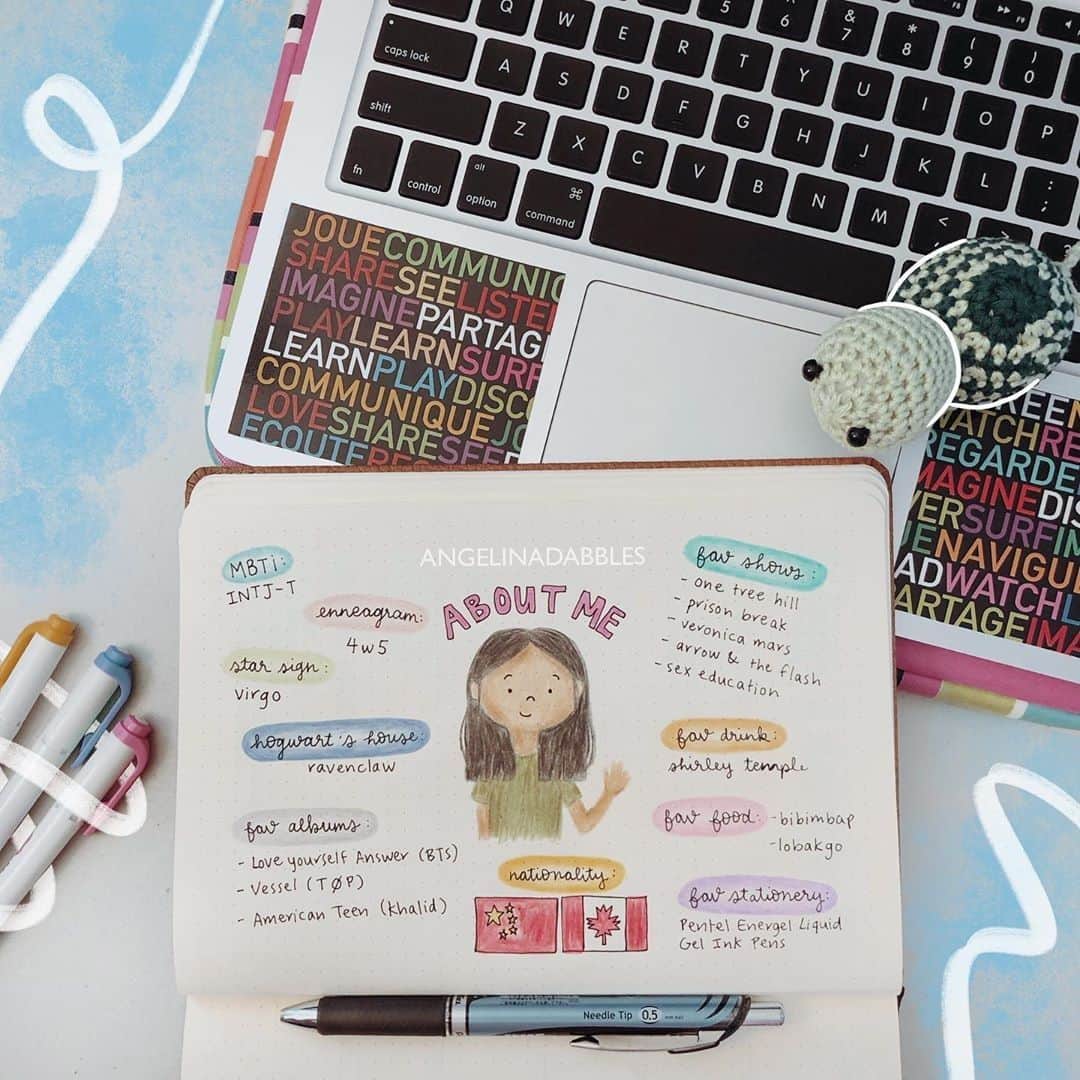 Q W E R T Y U I O P
5 6 & 7 * 8 ( 9 ) 0
caps lock A S D F G H J K L : ;
shift Z X C V B N M <
fn control alt option ⌘ command
JOUECOMMUNIC
SHARESEELISTE
IMAGINEPARTAG
PLAYLEARNSURF
LEARNPLAYDISCO
COMMUNIQUE
LOVESHARESEEJO
ECOUTE
WATCHRE
REGARDE
MAGINEDIS
YERSURFIM
NAVIGUE
ADWATCHL
PARTAGEIMA
ANGELINADABBLES
ABOUT ME
MBTi:
INTJ-T
enneagram:
4w5
star sign:
virgo
hogwart's house:
ravenclaw
fav albums:
- Love yourself Answer (BTS)
- Vessel (TØP)
- American Teen (Khalid)
nationality:
fav shows:
- one tree hill
- prison break
- veronica mars
- arrow & the flash
- sex education
fav drink:
shirley temple
fav food: - bibimbap
- lobakgo
fav stationery:
Pentel Energel Liquid
Gel Ink Pens
Needle Tip 0.5